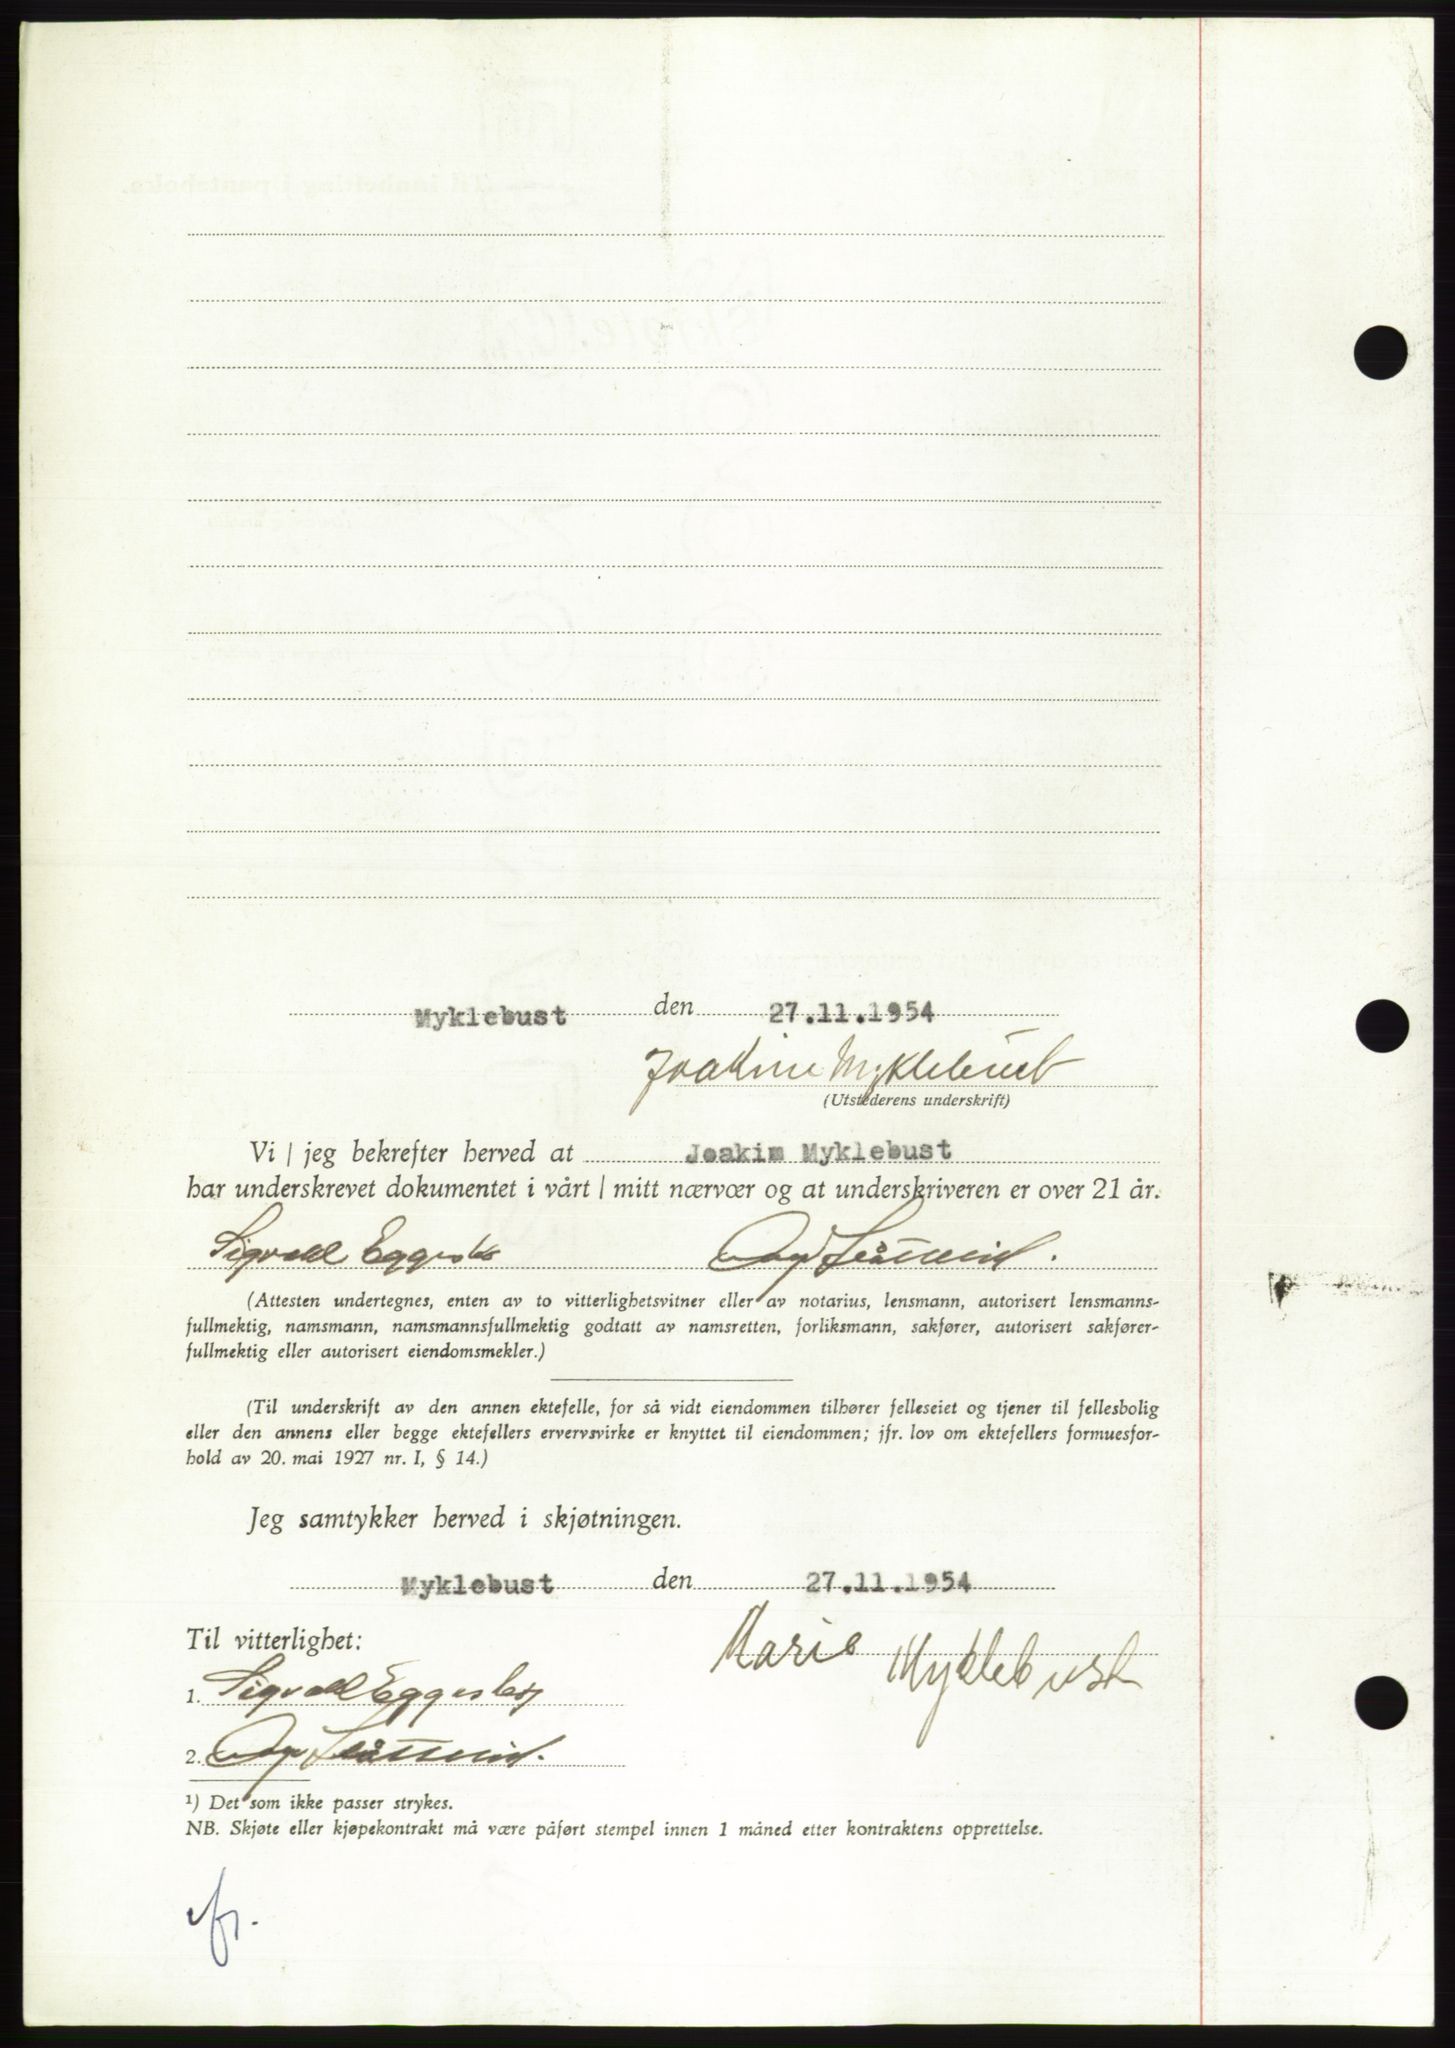 Myklebust den 27.11.1954
Joakim Myklebust
(Utstederens underskrift)
Vi / jeg bekrefter herved at Joakim Myklebust
har underskrevet dokumentet i vårt / mitt nærvær og at underskriveren er over 21 år.
Sigvald
(Attesten undertegnes, enten av to vitterlighetsvitner eller av notarius, lensmann, autorisert lensmanns-
fullmektig, namsmann, namsmannsfullmektig godtatt av namsretten, forliksmann, sakfører, autorisert sakfører-
fullmektig eller autorisert eiendomsmekler.)
(Til underskrift av den annen ektefelle, for så vidt eiendommen tilhører felleseiet og tjener til fellesbolig
eller den annens eller begge ektefellers ervervsvirke er knyttet til eiendommen; jfr. lov om ektefellers formuesfor-
hold av 20. mai 1927 nr. I, § 14.)
Jeg samtykker herved i skjøtningen.
Myklebust den 27.11.1954
Til vitterlighet:
Marie Myklebust
1. Sigvald
2.
¹) Det som ikke passer strykes.
NB. Skjøte eller kjøpekontrakt må være påført stempel innen 1 måned etter kontraktens opprettelse.